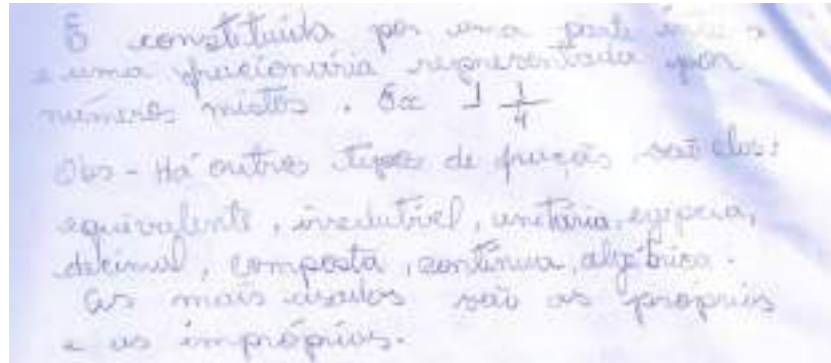 É constituída por uma parte
e uma fracionária representada por
números mistos. Ex 1 1/4
Obs - Há outros tipos de fração são elas:
equivalente, irredutível, unitária, egípcia,
decimal, composta, contínua, algébrica.
as mais usadas são as próprias
e as impróprias.